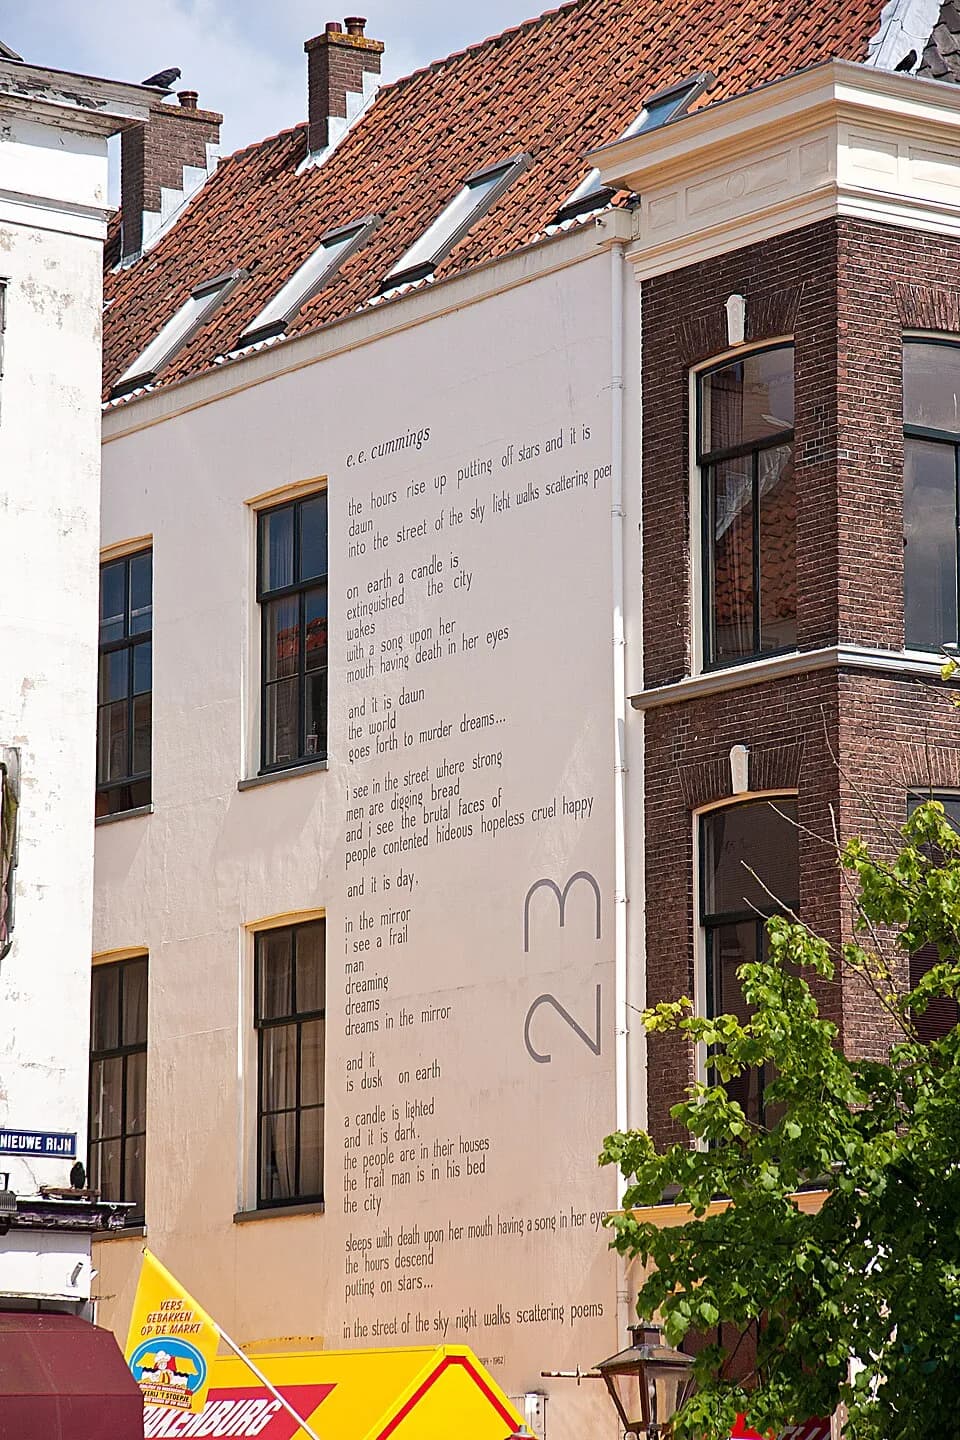 e. e. cummings
the hours rise up putting off stars and it is
dawn
into the street of the sky light walks scattering poem
on earth a candle is
extinguished the city
wakes
with a song upon her
mouth having death in her eyes
and it is dawn
the world
goes forth to murder dreams...
i see in the street where strong
men are digging bread
and i see the brutal faces of
people contented hideous hopeless cruel happy
and it is day,
in the mirror
i see a frail
man
dreaming
dreams
dreams in the mirror
and it
is dusk on earth
a candle is lighted
and it is dark.
the people are in their houses
the frail man is in his bed
the city
sleeps with death upon her mouth having a song in her eye
the hours descend
putting on stars...
in the street of the sky night walks scattering poems
23
NIEUWE RIJN
VERS
GEBAKKEN
OP DE MARKT
'T STOEPJE